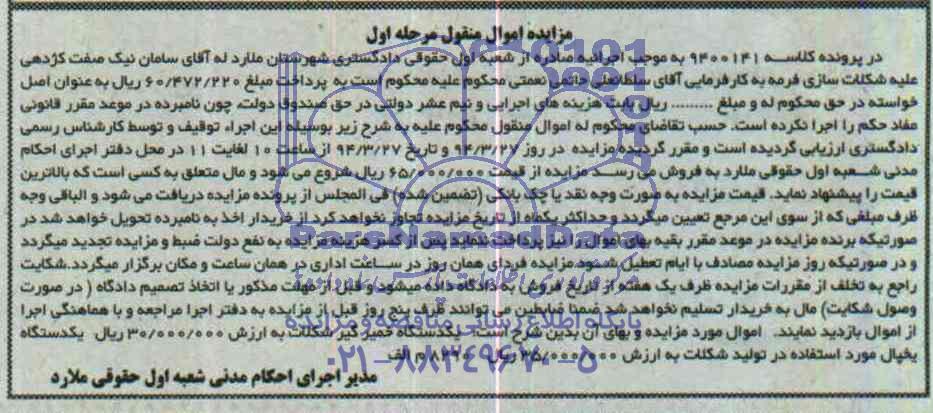 مزایده اموال منقول مرحله اول
در پرونده کلاسه ۹۴۰۰۱۴۱ به موجب اجرائیه صادره از شعبه اول حقوقی دادگستری شهرستان ملارد له آقای سامان نیک صفت کژدهی
علیه شکلات سازی فرمه به کارفرمایی آقای سلطانعلی حاتمی نعمتی محکوم علیه محکوم است به پرداخت مبلغ ۶۰/۴۷۲/۲۲۰ ریال به عنوان اصل
خواسته در حق محکوم له و مبلغ ......... ریال بابت هزینه های اجرایی و نیم عشر دولتی در حق صندوق دولت، چون نامبرده در موعد مقرر قانونی
مفاد حکم را اجرا نکرده است. حسب تقاضای محکوم له اموال منقول محکوم علیه به شرح زیر بوسیله این اجراء توقیف و توسط کارشناس رسمی
دادگستری ارزیابی گردیده است و مقرر گردیده مزایده در روز ۹۴/۳/۲۷ و تاریخ ۹۴/۳/۲۷ از ساعت ۱۰ لغایت ۱۱ در محل دفتر اجرای احکام
مدنی شعبه اول حقوقی ملارد به فروش می رسد مزایده از قیمت ۶۵/۰۰۰/۰۰۰ ریال شروع می شود و مال متعلق به کسی است که بالاترین
قیمت را پیشنهاد نماید. قیمت مزایده به صورت وجه نقد یا چک بانکی (تضمین شده) فی المجلس از پرونده مزایده دریافت می شود و الباقی وجه
ظرف مبلغی که از سوی این مرجع تعیین میگردد و حداکثر یکماه از تاریخ مزایده تجاوز نخواهد کرد از خریدار اخذ به نامبرده تحویل خواهد شد در
صورتیکه برنده مزایده در موعد مقرر بقیه بهای اموال را نیز پرداخت ننماید پس از کسر هزینه مزایده به نفع دولت ضبط و مزایده تجدید میگردد
و در صورتیکه روز مزایده مصادف با ایام تعطیل شود مزایده فردای همان روز در ساعت اداری در همان ساعت و مکان برگزار میگردد.شکایت
راجع به تخلف از مقررات مزایده ظرف یک هفته از تاریخ فروش به دادگاه داده میشود و قبل از مهلت مذکور یا اتخاذ تصمیم دادگاه ( در صورت
وصول شکایت) مال به خریدار تسلیم نخواهد شد ضمنا متقاضیین می توانند ظرف پنج روز قبل از مزایده به دفتر اجرا مراجعه و با هماهنگی اجرا
از اموال بازدید نمایند. اموال مورد مزایده و بهای آن بدین شرح است: یکدستگاه خمیر گیر شکلات به ارزش ۳۰/۰۰۰/۰۰۰ ریال یکدستگاه
یخچال مورد استفاده در تولید شکلات به ارزش ۳۵/۰۰۰/۰۰۰ ریال م الف
مدیر اجرای احکام مدنی شعبه اول حقوقی ملارد
ParsNamadData
پایگاه اطلاع رسانی مناقصه و مزایده
۰۲۱-۸۸۳۴۹۶۷۰-۵